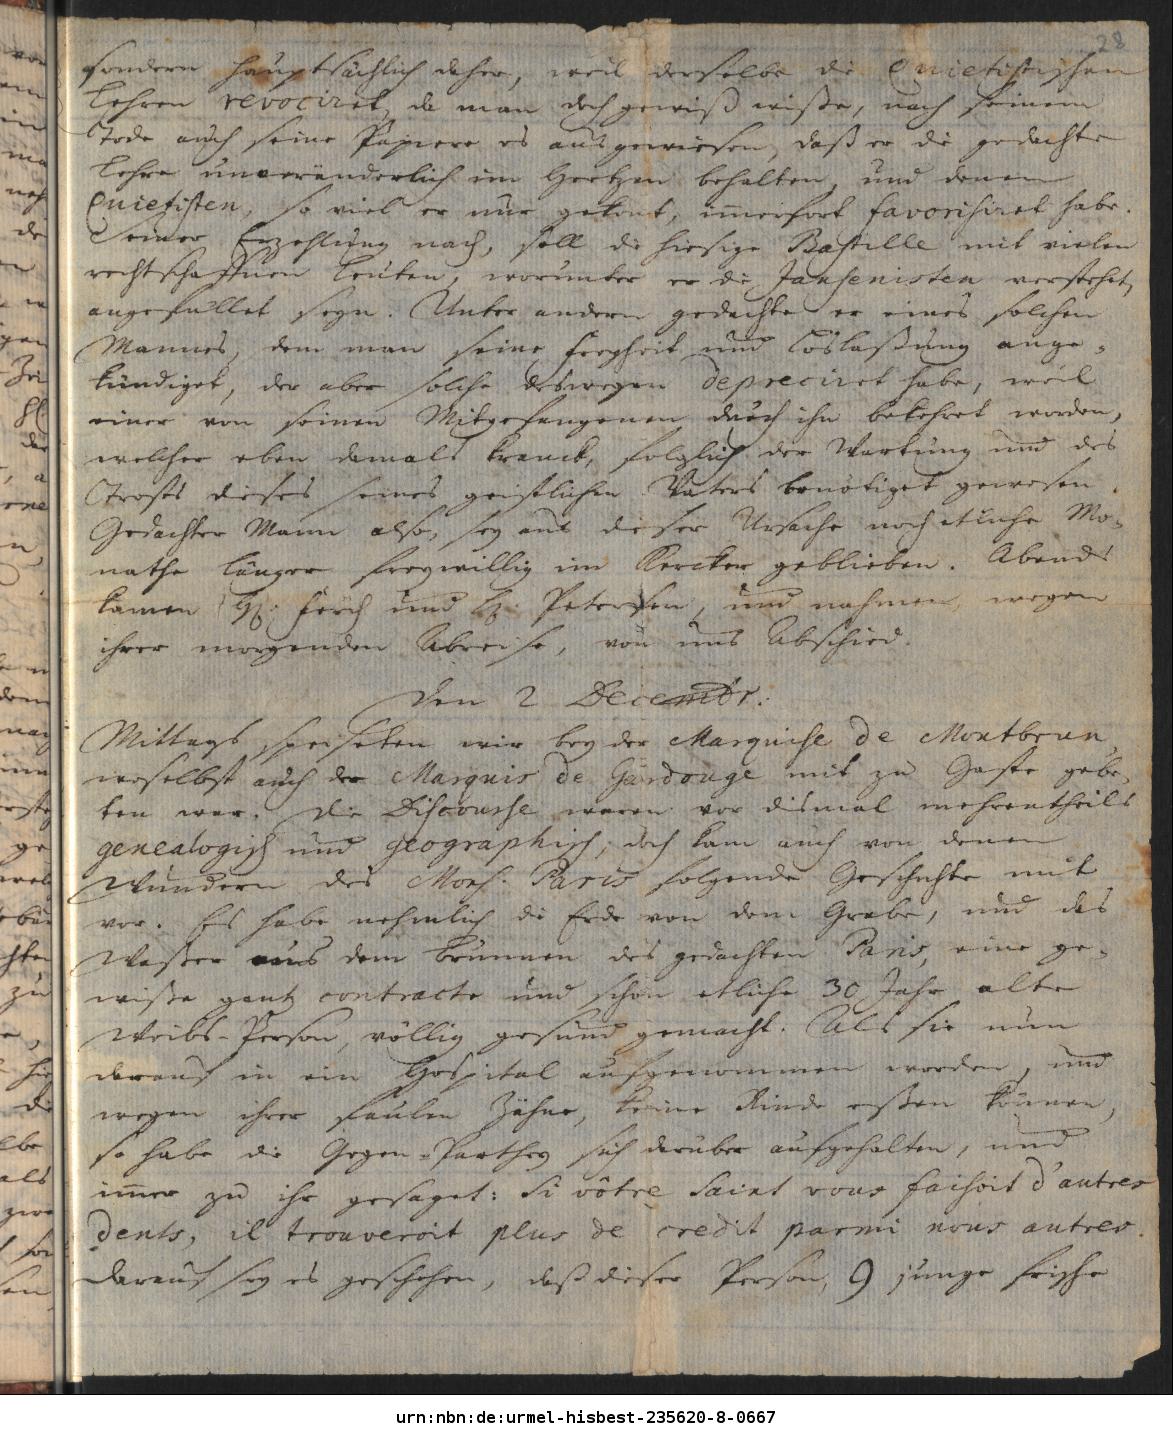 28
sondern hauptsächlich daher, weil derselbe die Quietistischen
Lehren revociret, da man doch gewiß wiße, nach seinem
Tode auch seine Papiere es ausgewiesen, daß er die gedachte
Lehre unveränderlich im Hertzen behalten, und denen
Quietisten, so viel er nur gekont, immerfort favorisiret habe.
Seiner Erzehlung nach, soll die hiesige Bastille mit vielen
rechtschaffnen Leuten, worunter er die Jansenisten verstehet,
angefüllet seyn. Unter andern gedachte er eines solchen
Mannes, dem man seine Freyheit und Loslaßung ange-
kündiget, der aber solche deswegen depreciret habe, weil
einer von seinen Mitgefangenen durch ihn bekehret worden,
welcher eben damals kranck, folglich der Wartung und des
Trosts dieses seines geistlichen Vaters benötiget gewesen.
Gedachter Mann also, sey aus dieser Ursache noch etliche Mo-
nathe länger freywillig im Kercker geblieben. Abends
kamen H. Ferch und H. Petersen, und nahmen, wegen
ihrer morgenden Abreise, von uns Abschied.
Den 2 Decembr:
Mittags speiseten wir bey der Marquise de Montbrun
woselbst auch der Marquis de Gardouge mit zu Gaste gebe-
ten war. Die Discourse waren vor dismal mehrentheils
genealogisch und geographisch, doch kam auch von denen
Wundern des Mons. Paris folgende Geschichte mit
vor. Es habe nehmlich die Erde von dem Grabe, und das
Waßer aus dem Brunnen des gedachten Paris, eine ge-
wiße gantz contracte und schon etliche 30 Jahr alte
Weibs-Person, völlig gesund gemacht. Als sie nun
darauf in ein Hospital aufgenommen worden, und
wegen ihrer faulen Zähne, keine Rinde eßen können,
so habe die Gegen-Parthey sich darüber aufgehalten, und
immer zu ihr gesaget: Si vôtre Saint vous faisoit d'autres
dents, il trouveroit plus de credit parmi nous autres.
Darauf sey es geschehen, daß dieser Person, 9 junge frische
urn:nbn:de:urmel-hisbest-235620-8-0667